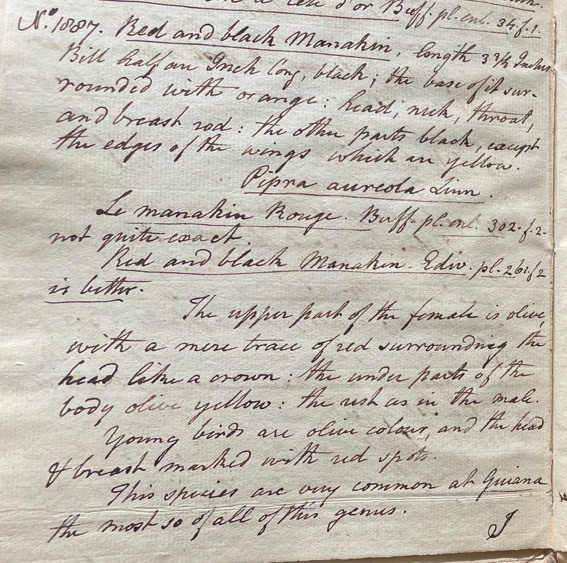 a tête d'or Buff. pl. enl. 34. f. 1.
No. 1887. Red and black Manakin, length 3 3/4 Inches
Bill half an Inch long, black; the base of it sur-
rounded with orange: head, neck, throat,
and breast red: the other parts black, except
the edges of the wings which are yellow.
Pipra aureola Linn.
Le manakin Rouge. Buff. pl. enl. 302. f. 2.
not quite exact.
Red and black Manakin. Edw. pl. 261. f 2
is better.
The upper part of the female is olive
with a mere trace of red surrounding the
head like a crown: the under parts of the
body olive yellow: the rest as in the male.
Young birds are olive colour, and the head
& breast marked with red spots.
This species are very common at Guiana,
the most so of all of this genus.